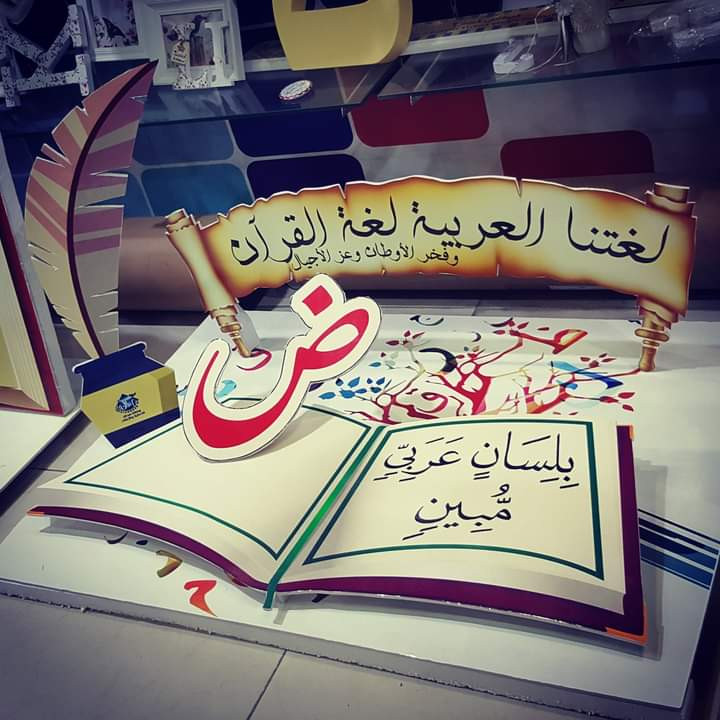 لغتنا العربية لغة القرآن
وفخر الأوطان وعز الأجيال
ض
بِلِسَانٍ عَرَبِيٍّ
مُّبِينٍ